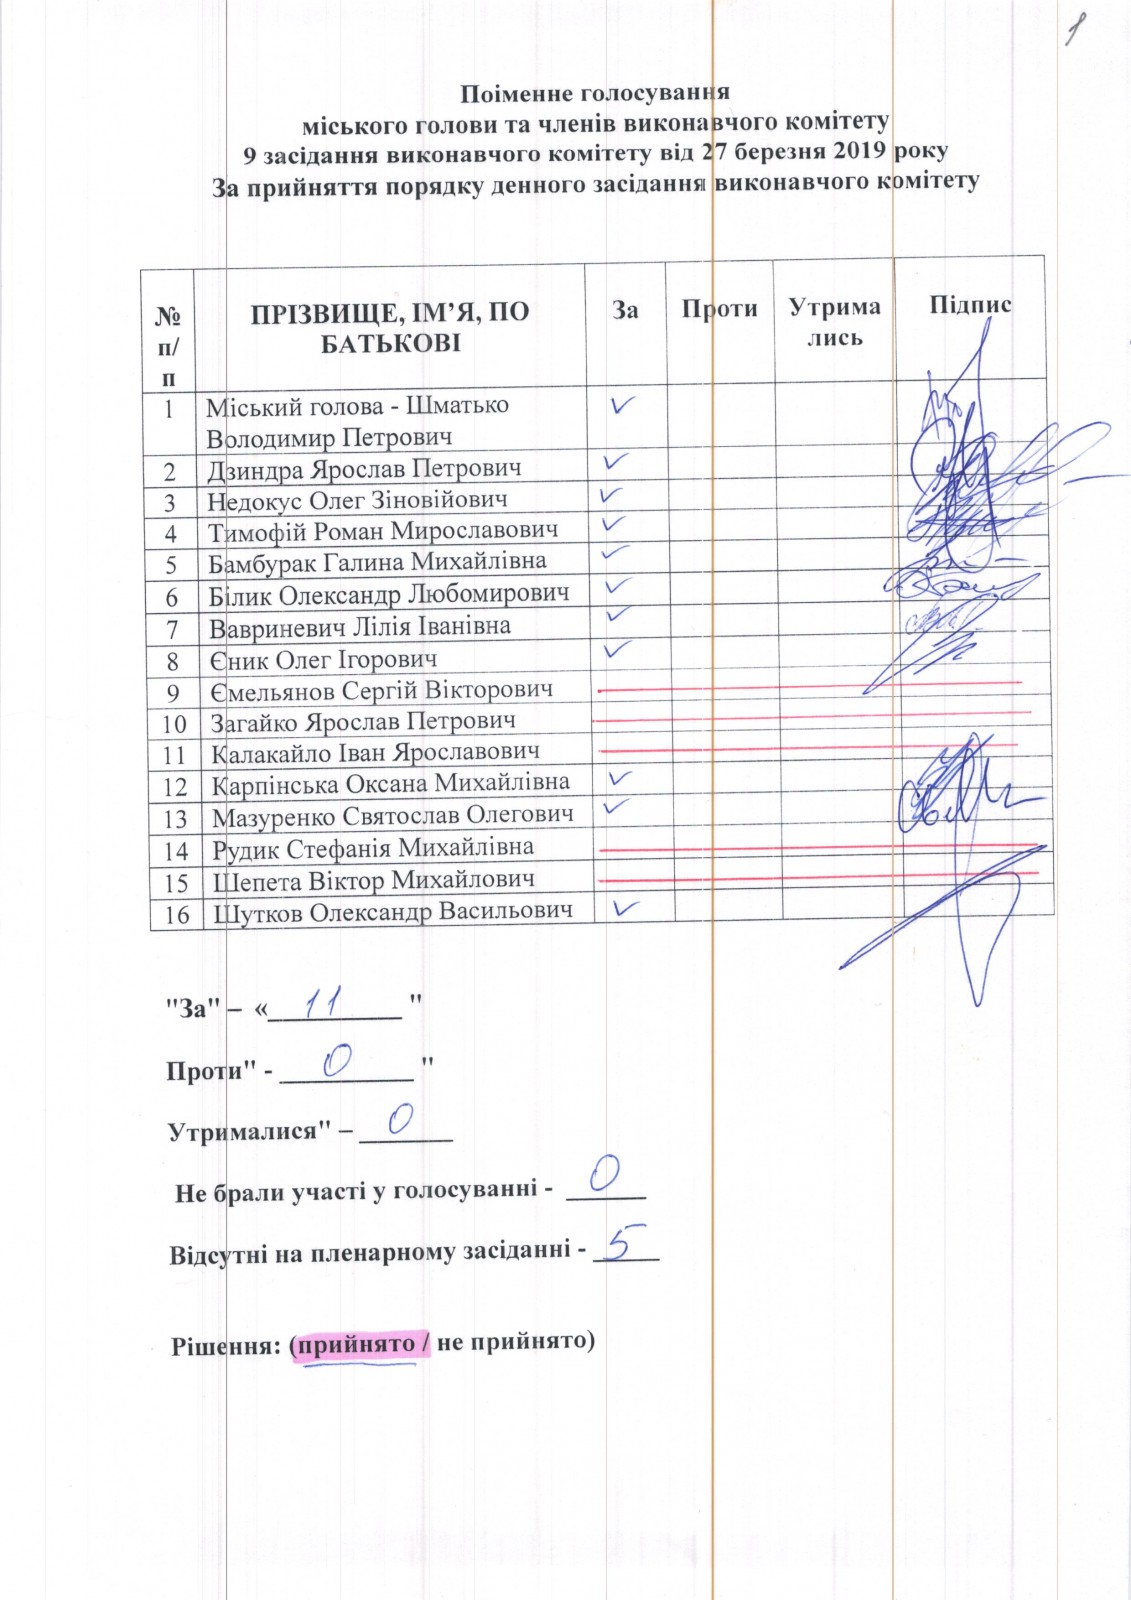 1
Поіменне голосування
міського голови та членів виконавчого комітету
9 засідання виконавчого комітету від 27 березня 2019 року
За прийняття порядку денного засідання виконавчого комітету
№ п/п ПРІЗВИЩЕ, ІМ’Я, ПО БАТЬКОВІ За Проти Утрима лись Підпис
1 Міський голова - Шматько ✓
Володимир Петрович
2 Дзиндра Ярослав Петрович ✓
3 Недокус Олег Зіновійович ✓
4 Тимофій Роман Мирославович ✓
5 Бамбурак Галина Михайлівна ✓
6 Білик Олександр Любомирович ✓
7 Вавриневич Лілія Іванівна ✓
8 Єник Олег Ігорович ✓
9 Ємельянов Сергій Вікторович
10 Загайко Ярослав Петрович
11 Калакайло Іван Ярославович
12 Карпінська Оксана Михайлівна ✓
13 Мазуренко Святослав Олегович ✓
14 Рудик Стефанія Михайлівна
15 Шепета Віктор Михайлович
16 Шутков Олександр Васильович ✓
"За" – «11"
Проти" - 0 "
Утрималися" – 0
Не брали участі у голосуванні - 0
Відсутні на пленарному засіданні - 5
Рішення: (прийнято / не прийнято)